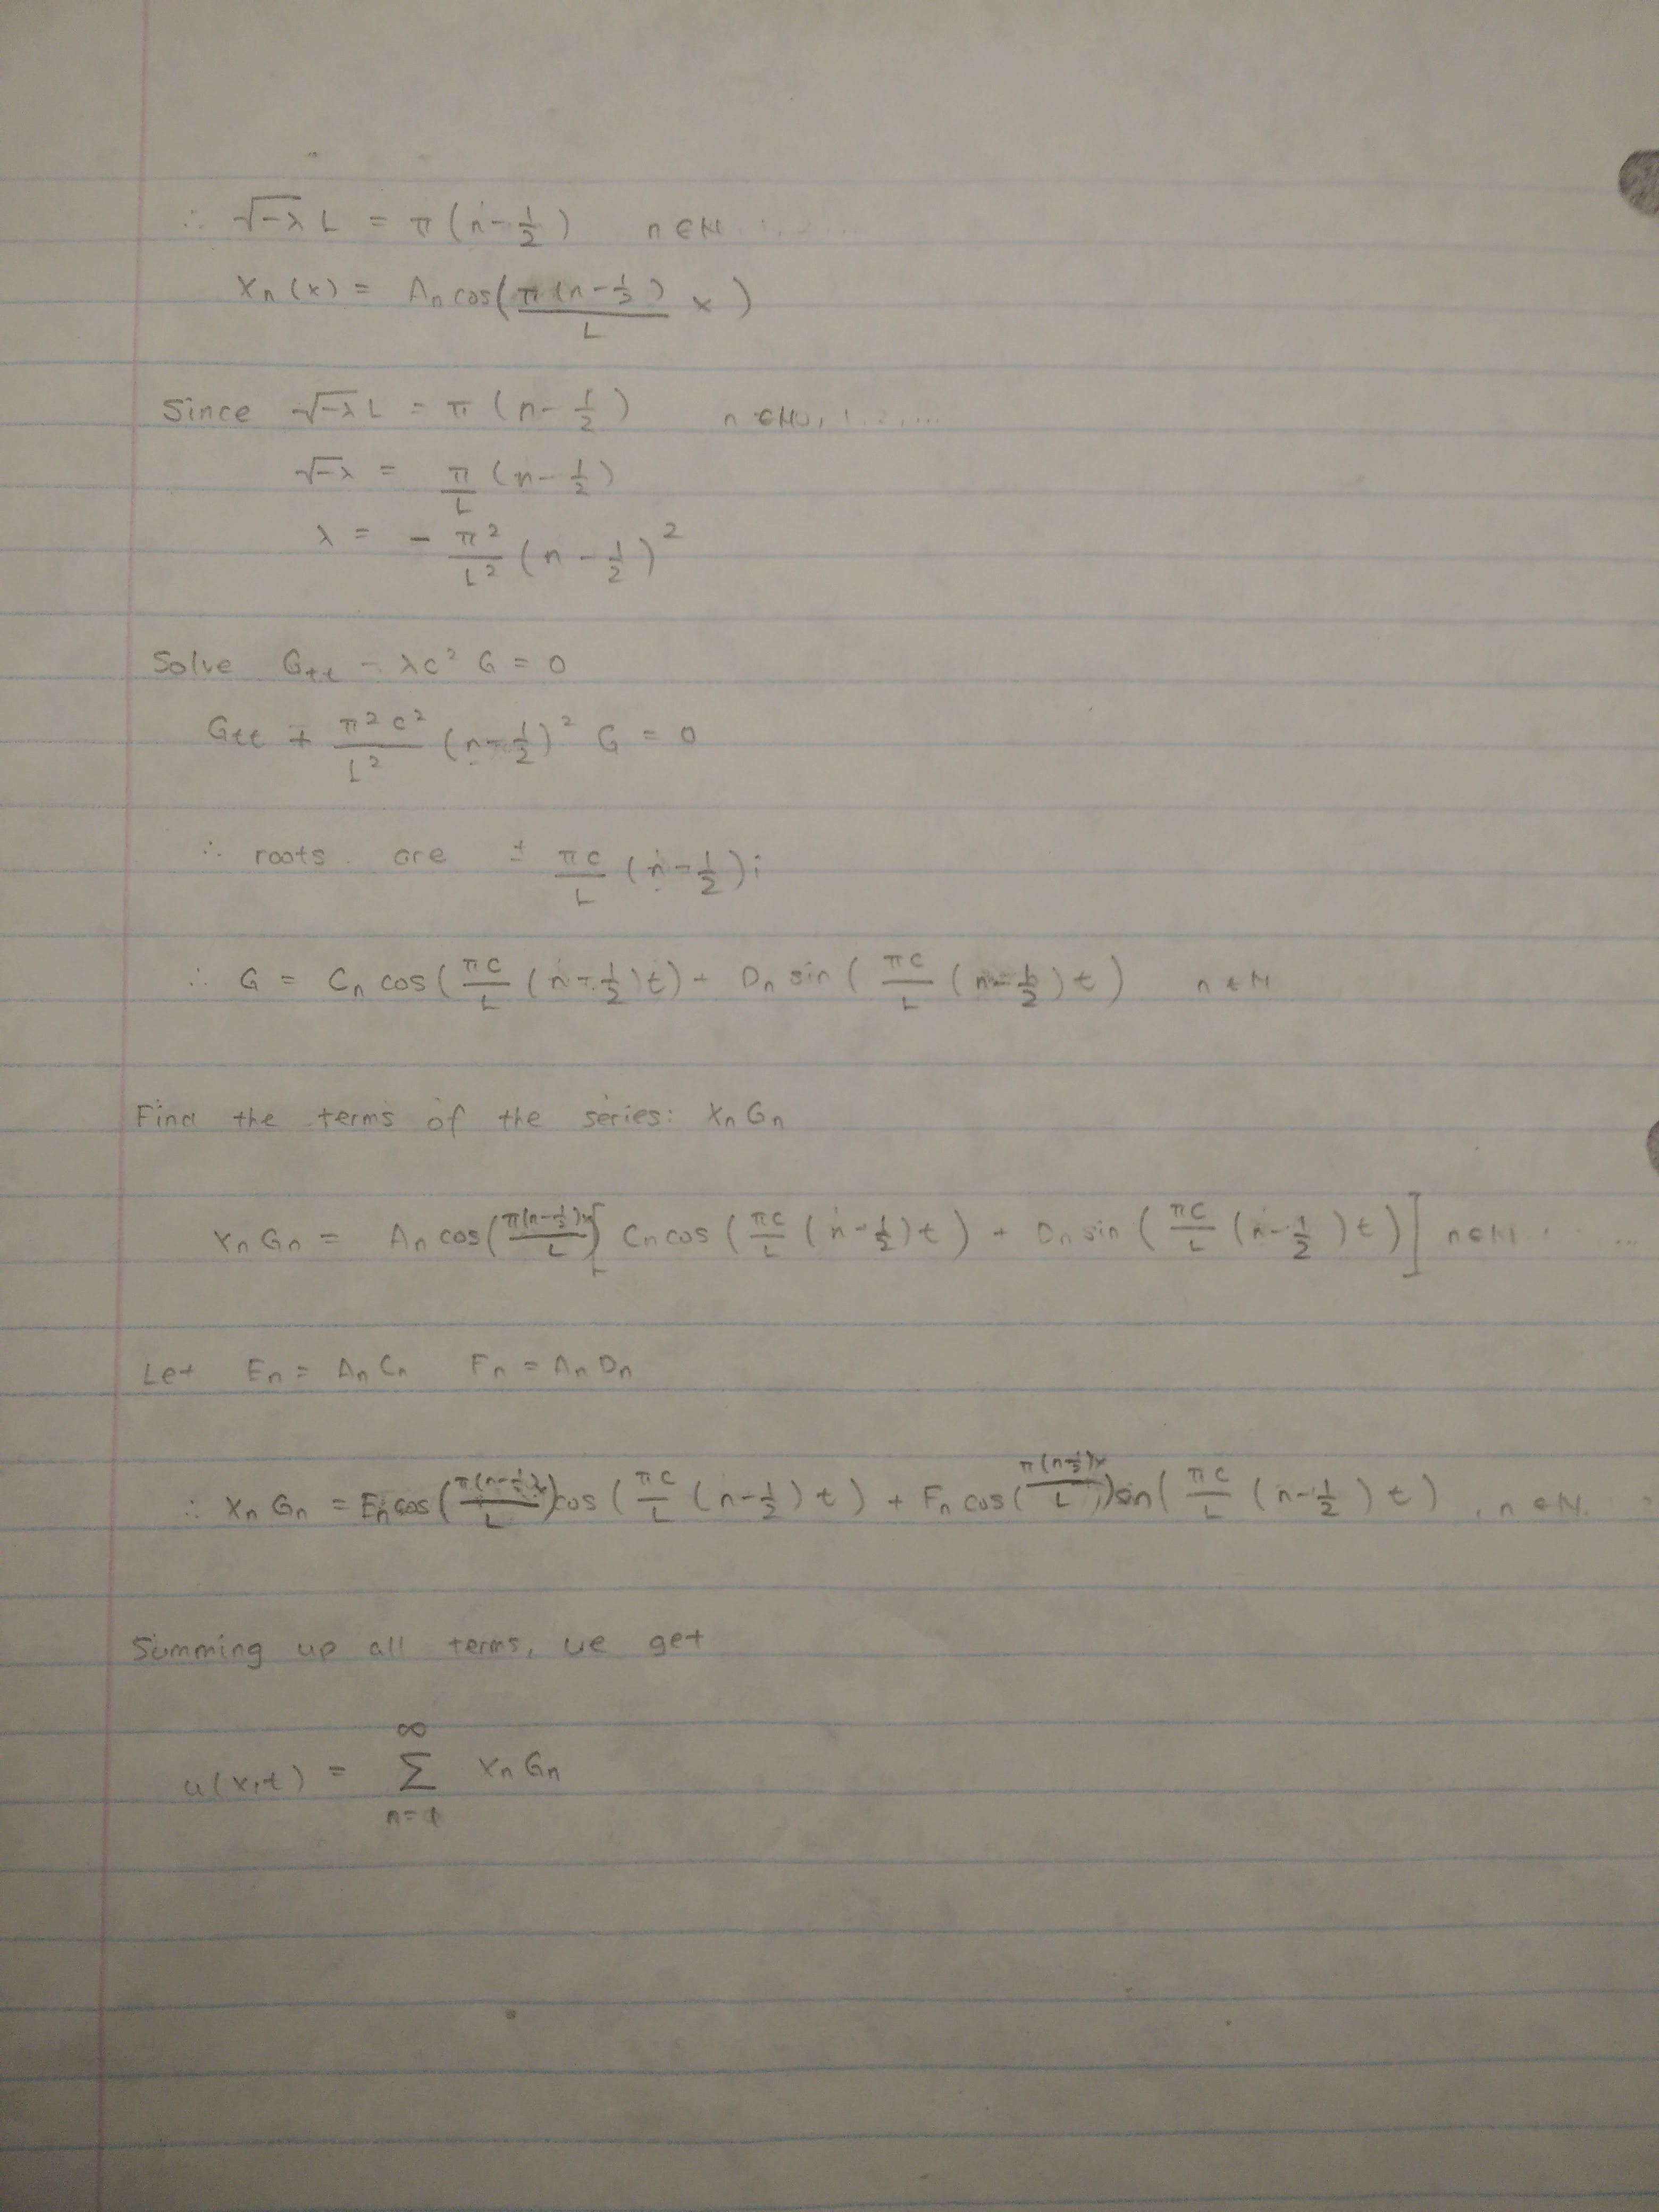 ∴ √-λ L = π(n-1/2) n∈N
Xn(x) = An cos(π(n-1/2)/L x)
Since √-λ L = π(n-1/2)
√-λ = π/L (n-1/2)
λ = - π²/L² (n-1/2)²
Solve Gtt - λc² G = 0
Gtt + π²c²/L² (n-1/2)² G = 0
∴ roots are ± πc/L (n-1/2)i
∴ G = Cn cos(πc/L (n-1/2)t) + Dn sin(πc/L (n-1/2)t) n∈N
Find the terms of the series: Xn Gn
Xn Gn = An cos(π(n-1/2)x/L)[Cn cos(πc/L (n-1/2)t) + Dn sin(πc/L (n-1/2)t)] n∈N
Let En = An Cn Fn = An Dn
∴ Xn Gn = En cos(π(n-1/2)x/L) cos(πc/L (n-1/2)t) + Fn cos(π(n-1/2)x/L) sin(πc/L (n-1/2)t), n∈N
Summing up all terms, we get
u(x,t) = ∞Σn=1 Xn Gn